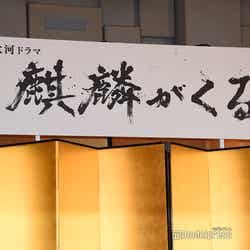 河ドラマ
麒麟がくる
modelpress